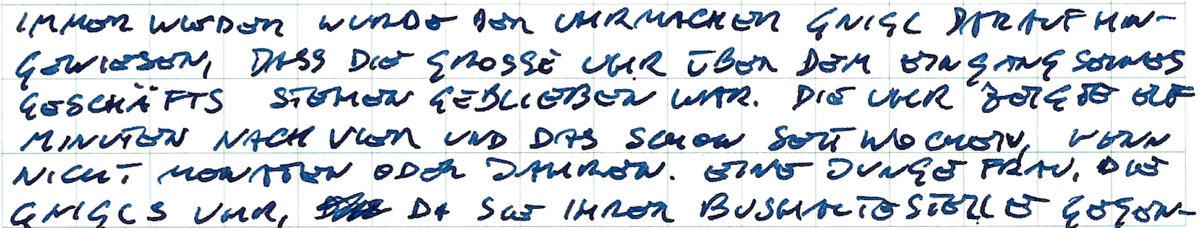 IMMER WIEDER WURDE DER UHRMACHER GNIGL DARAUF HIN-
GEWIESEN, DASS DIE GROSSE UHR ÜBER DEM EINGANG SEINES
GESCHÄFTS STEHEN GEBLIEBEN WAR. DIE UHR ZEIGTE ELF
MINUTEN NACH VIER UND DAS SCHON SEIT WOCHEN, WENN
NICHT MONATEN ODER JAHREN. EINE JUNGE FRAU, DIE
GNIGLS UHR, DA SIE IHRER BUSHALTESTELLE GEGEN-